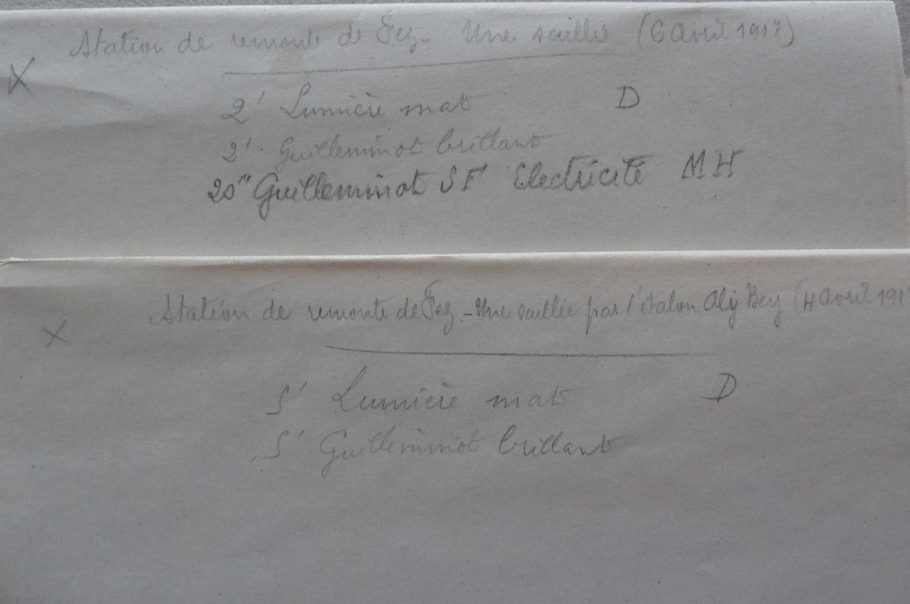 Station de remonte de Fez - Une saillie (6 avril 1917)
X
2' Lumière mat D
2' Guilleminot brillant
20" Guilleminot SF Electricité MH
Station de remonte de Fez - Une saillie par l'étalon Aly Bey (4 avril 191
X
5' Lumière mat D
5' Guilleminot brillant